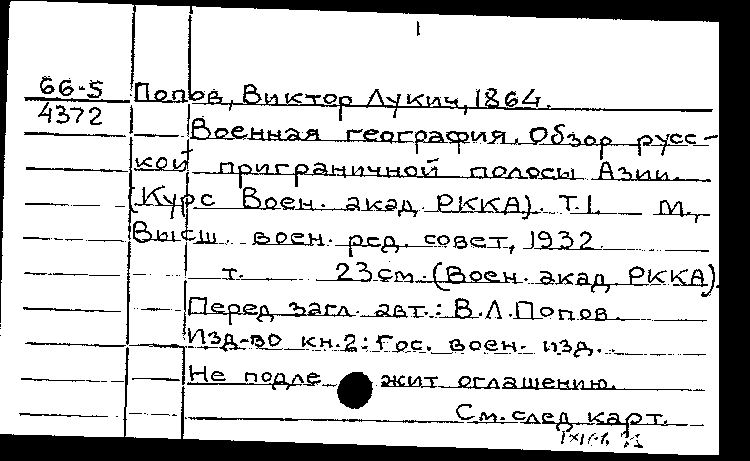 1
66-5 Попов, Виктор Лукич, 1864.
4372
Военная география. Обзор русс-
кой приграничной полосы Азии.
(Курс Воен. акад. РККА). Т.1. М.,
Высш. воен. ред. совет, 1932.
т. 23 см. (Воен. акад. РККА).
Перед загл. авт.: В.Л.Попов.
Изд-во кн.2: Гос. воен. изд.
Не подлежит оглашению.
См. след. карт.